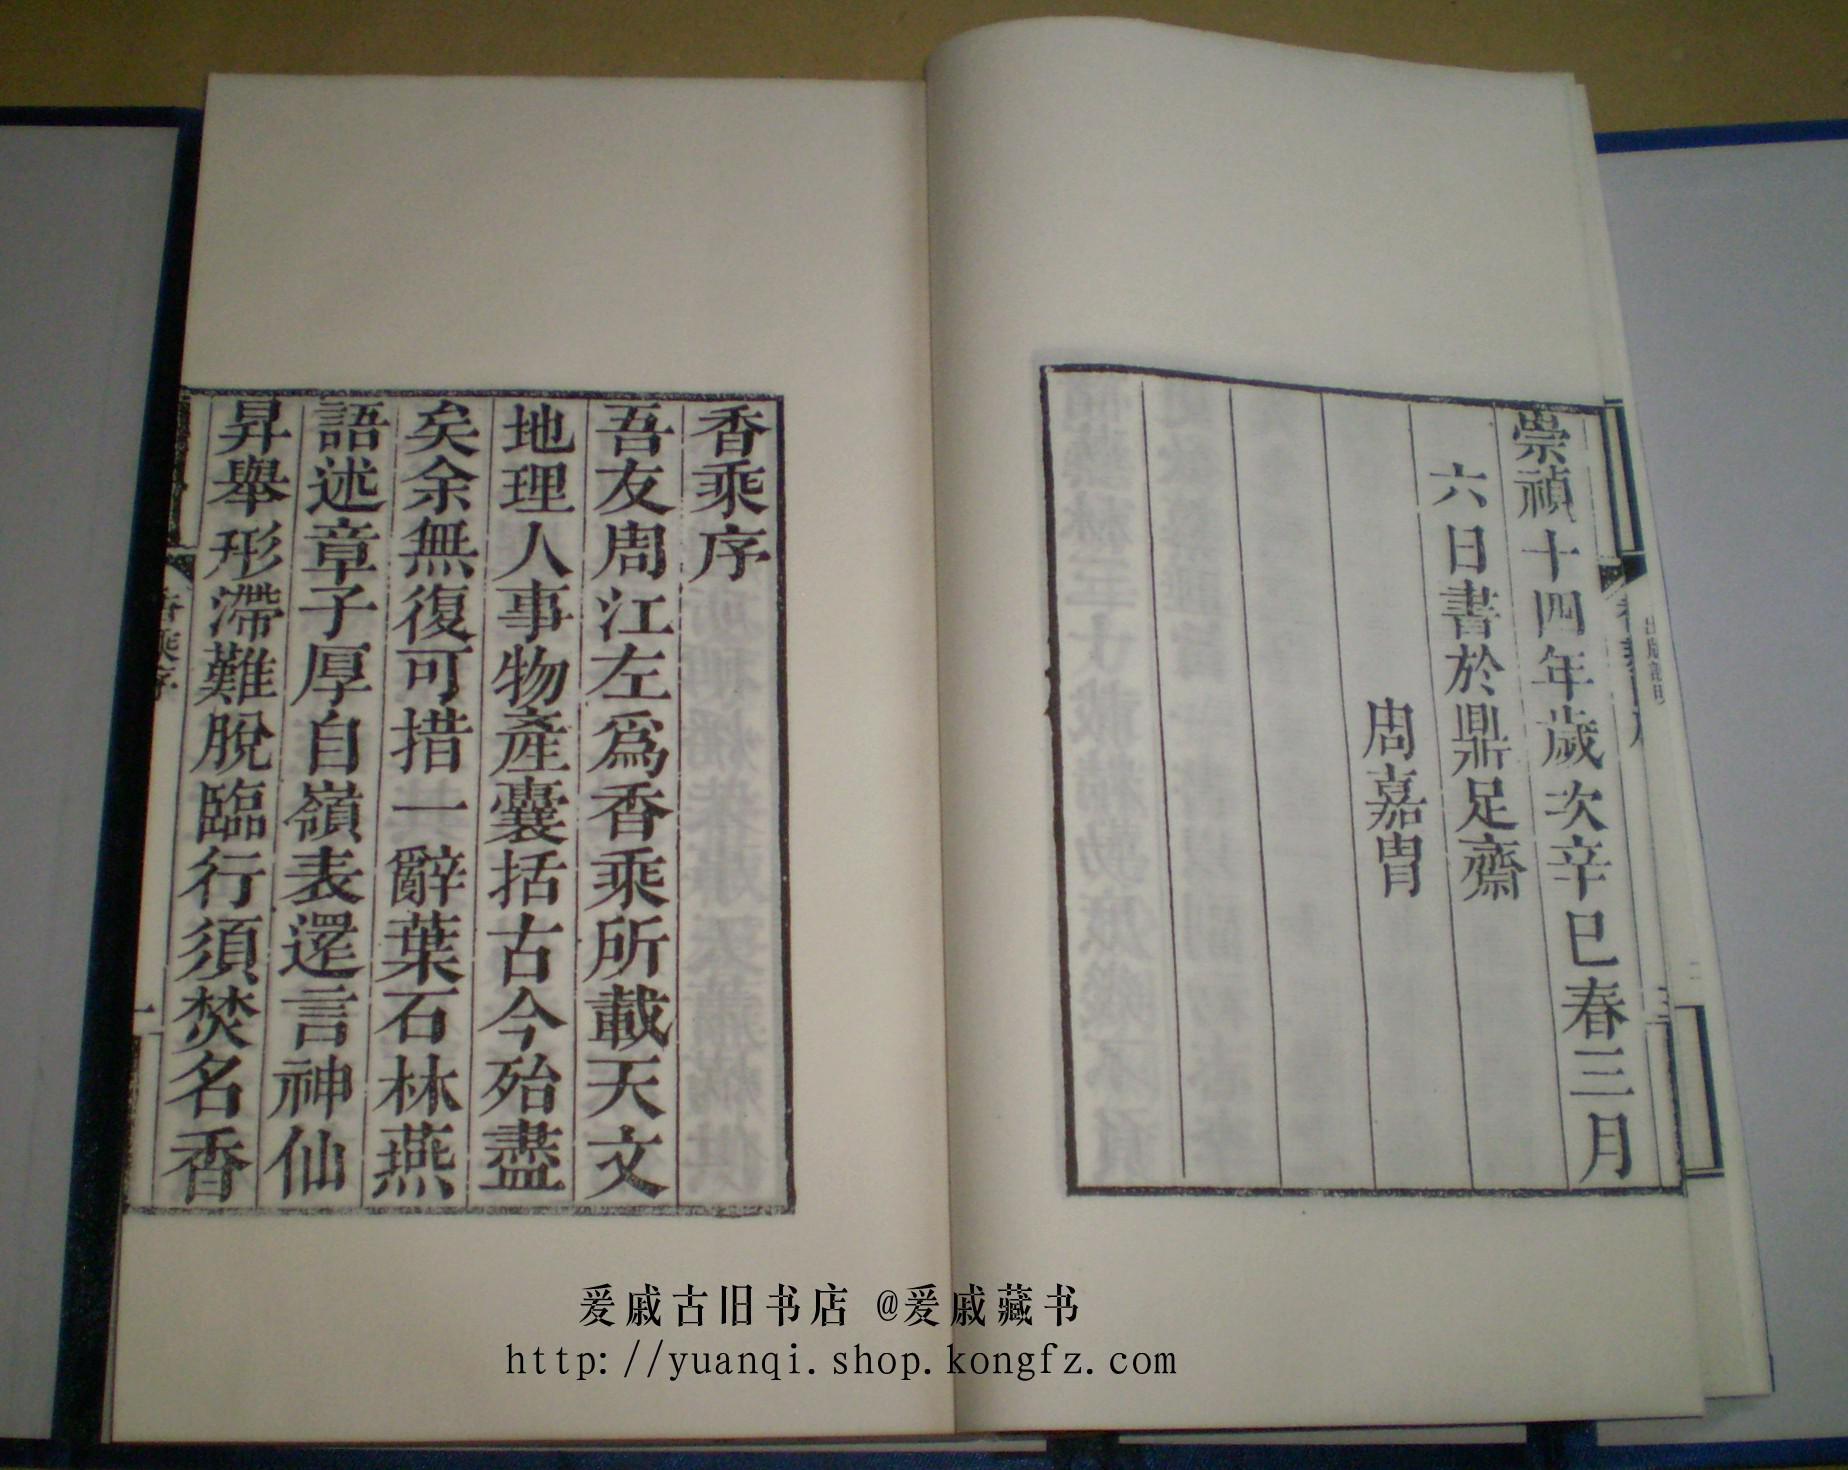 崇禎十四年歲次辛巳春三月
六日書於鼎足齋
周嘉冑
香乘序
吾友周江左為香乘所載天文
地理人事物產囊括古今殆盡
矣余無復可措一辭葉石林燕
語述章子厚自嶺表還言神仙
昇舉形滯難脫臨行須焚名香
香乘序
一
爰戚古旧书店 @爰戚藏书
http://yuanqi.shop.kongfz.com